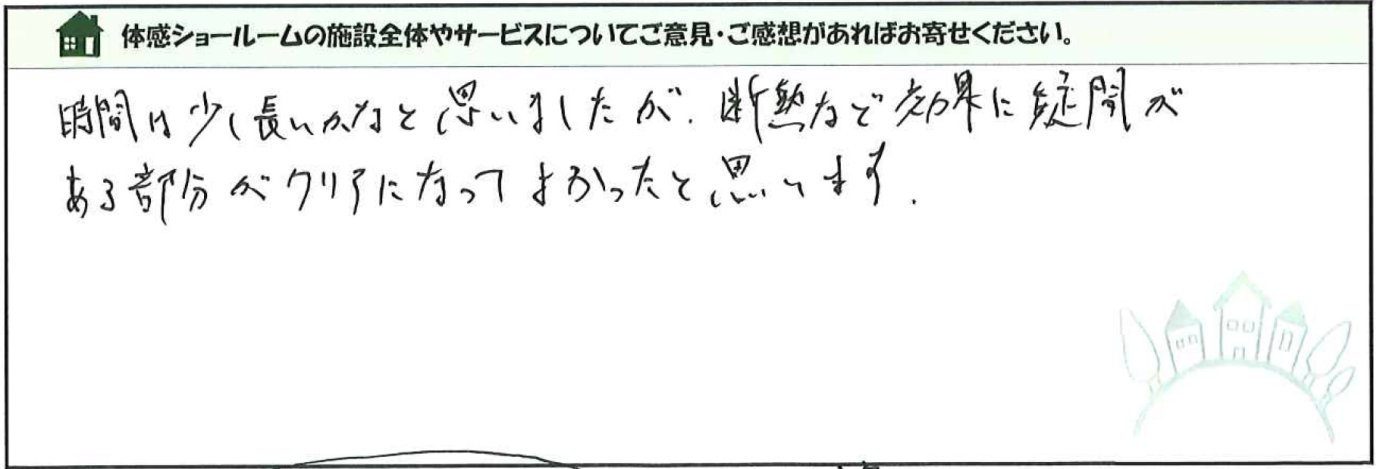 体感ショールームの施設全体やサービスについてご意見・ご感想があればお寄せください。
時間は少し長いかなと思いましたが、断熱など効果に疑問が
ある部分がクリアになってよかったと思います。